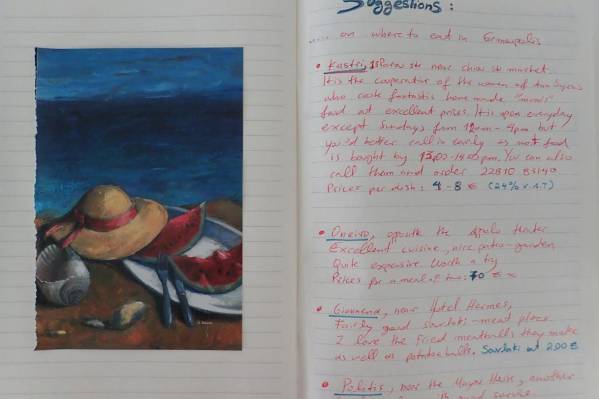 Suggestions :
on where to eat in Ermoupolis
• Kastri, str near chiou str market.
It is the cooperative of the women of Ano Syros
who cook fantastic home made "mama's"
food at excellent prices. It is open everyday
except Sundays from 12am - 4pm but
you'd better call in early as most food
is bought by 13,00-14,00pm. You can also
call them and order 22810 83140
Prices per dish : 4 - 8 € (24% V.A.T)
• Oneiro, opposite the Apollo theater
Excellent cuisine, nice patio-garden
Quite expensive. Worth a try
Prices for a meal two: 70 €
• Giannena, near Hotel Hermes,
Fairly good souvlaki-meat place
I love the fried meatballs they make
as well as potatoe balls. Souvlaki at 2.00 €
• Politis, near the Mayor House, another